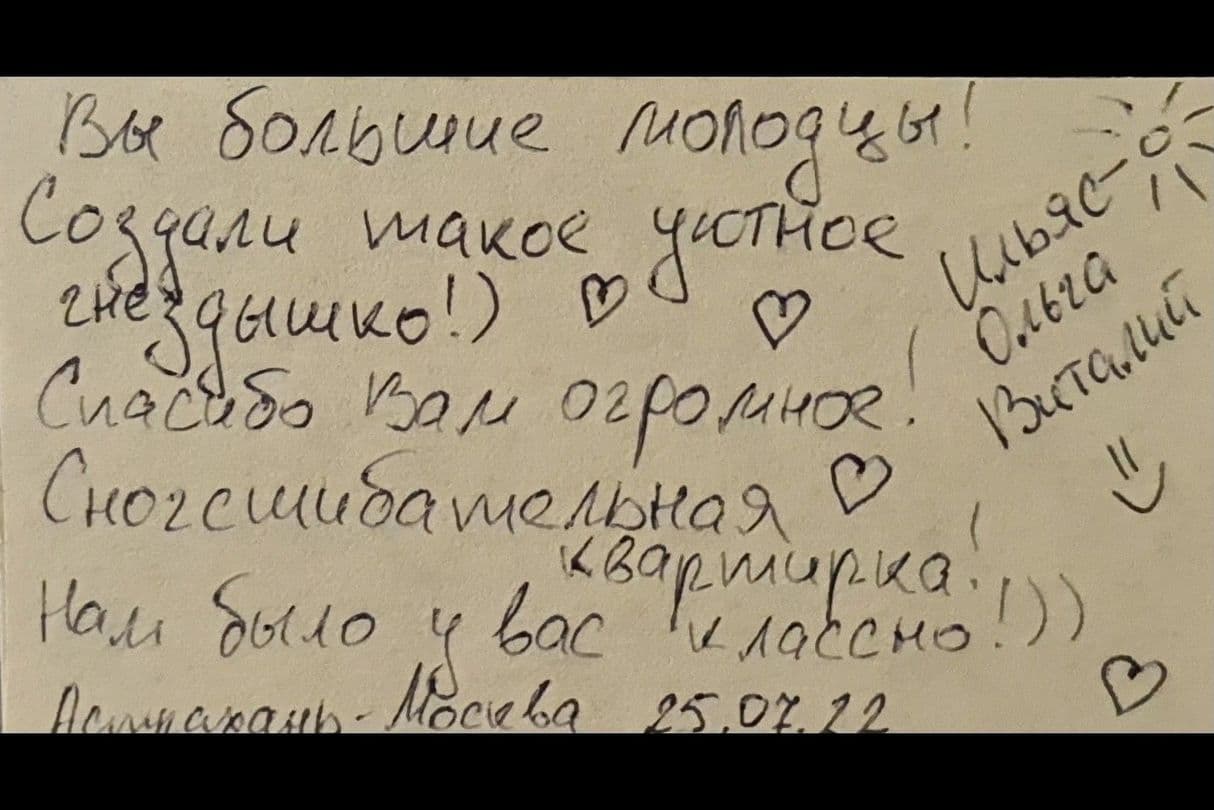 Вы большие молодцы!
Создали такое уютное
гнёздышко!) ♡ ♡
Спасибо Вам огромное!
Сногсшибательная ♡
квартирка!
Нам было у вас классно!))
Астрахань - Москва 25.07.22 ♡
Ильяс
Ольга
Виталий